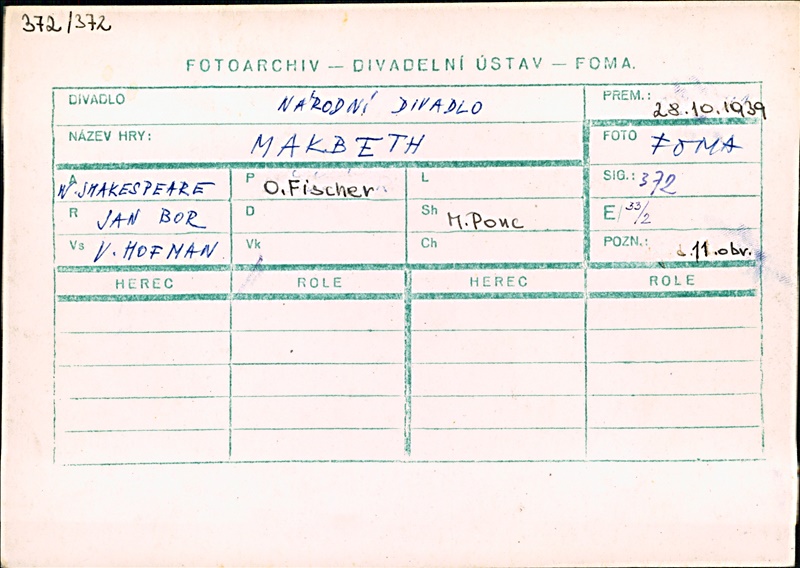 372/372
FOTOARCHIV — DIVADELNÍ ÚSTAV — FOMA.
DIVADLO NÁRODNÍ DIVADLO PREM.: 28.10.1939
NÁZEV HRY: MAKBETH FOTO FOMA
A W. SHAKESPEARE P O. Fischer L SIG.: 372
R JAN BOR D Sh M. Ponc E/33/2
Vs V. HOFMAN Vk Ch POZN.: 11. obr.
HEREC ROLE HEREC ROLE